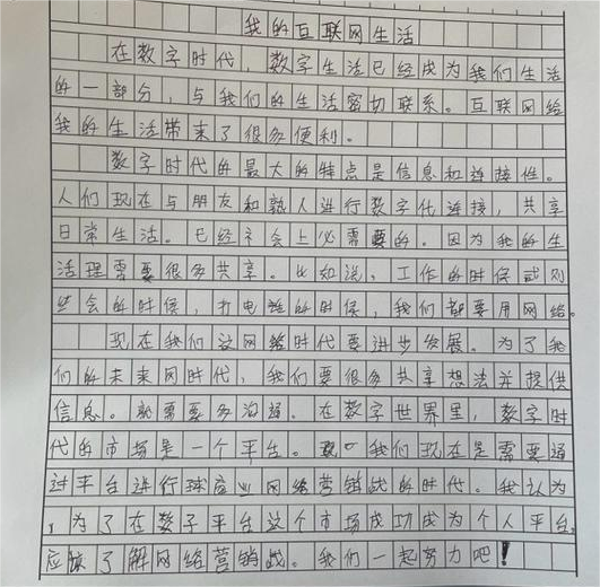 我的互联网生活
在数字时代，数字生活已经成为我们生活
的一部分，与我们的生活密切联系。互联网给
我的生活带来了很多便利。
数字时代的最大的特点是信息和连接性。
人们现在与朋友和熟人进行数字化连接，共享
日常生活。已经社会上必需要的。因为我的生
活理需要很多共享。比如说、工作的时候或则
些会的时候，打电话的时候，我们都要用网络。
现在我们这网络时代要进步发展。为了我
们的未来网时代，我们要很多共享想法并提供
信息。就需要多沟通。在数字世界里，数字时
代的市场是一个平台。我们现在是需要通
过平台进行球应业网络营销战的时代。我认为
，为了在数子平台这个市场成功成为个人平台。
应该了解网络营销战。我们一起努力吧！